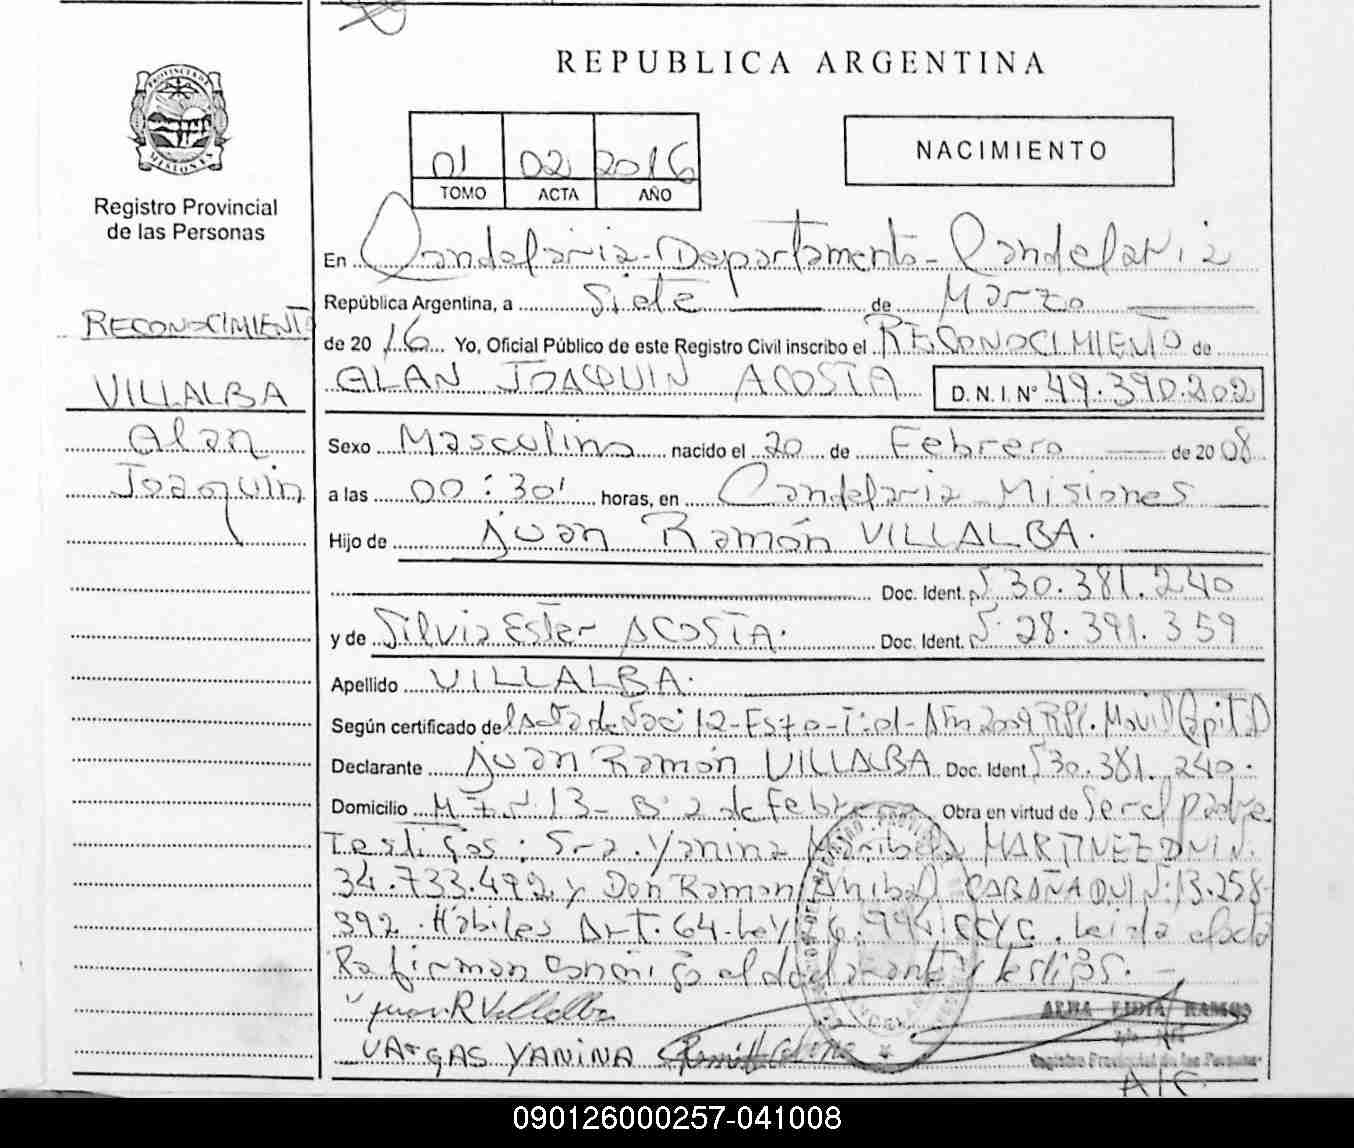 REPUBLICA ARGENTINA
PROVINCIA DE MISIONES
Registro Provincial
de las Personas
01 02 2016
TOMO ACTA AÑO
NACIMIENTO
RECONOCIMIENTO
VILLALBA
Alan
Joaquin
En Candelaria - Departamento - Candelaria
República Argentina, a Siete de Marzo
de 20 16 Yo, Oficial Público de este Registro Civil inscribo el RECONOCIMIENTO de
ALAN JOAQUIN ACOSTA D.N.I. Nº 49.390.202
Sexo Masculino nacido el 20 de Febrero de 20 08
a las 00:30' horas, en Candelaria - Misiones
Hijo de Juan Ramón VILLALBA.
Doc. Ident. 30.381.240
y de Silvia Ester ACOSTA. Doc. Ident. 28.391.359
Apellido VILLALBA.
Según certificado de Acta de Nac: 12 - - - Movil
Declarante Juan Ramón VILLALBA Doc. Ident 30.381.240.
Domicilio 13 - Bº 2 de Febrero Obra en virtud de Ser el padre
Testigos: Sra. Yanina MARTINEZ DNI Nº
34.733.492 y Don Ramon Anibal DNI Nº: 13.258.
392. Hábiles Art. 64 - Ley 26.994 CCYC. Leida el acta
La firman conmigo el declarante y testigos. -
Juan R Villalba
VARGAS YANINA
ALBA RAMOS
Registro Provincial de las Personas
090126000257-041008